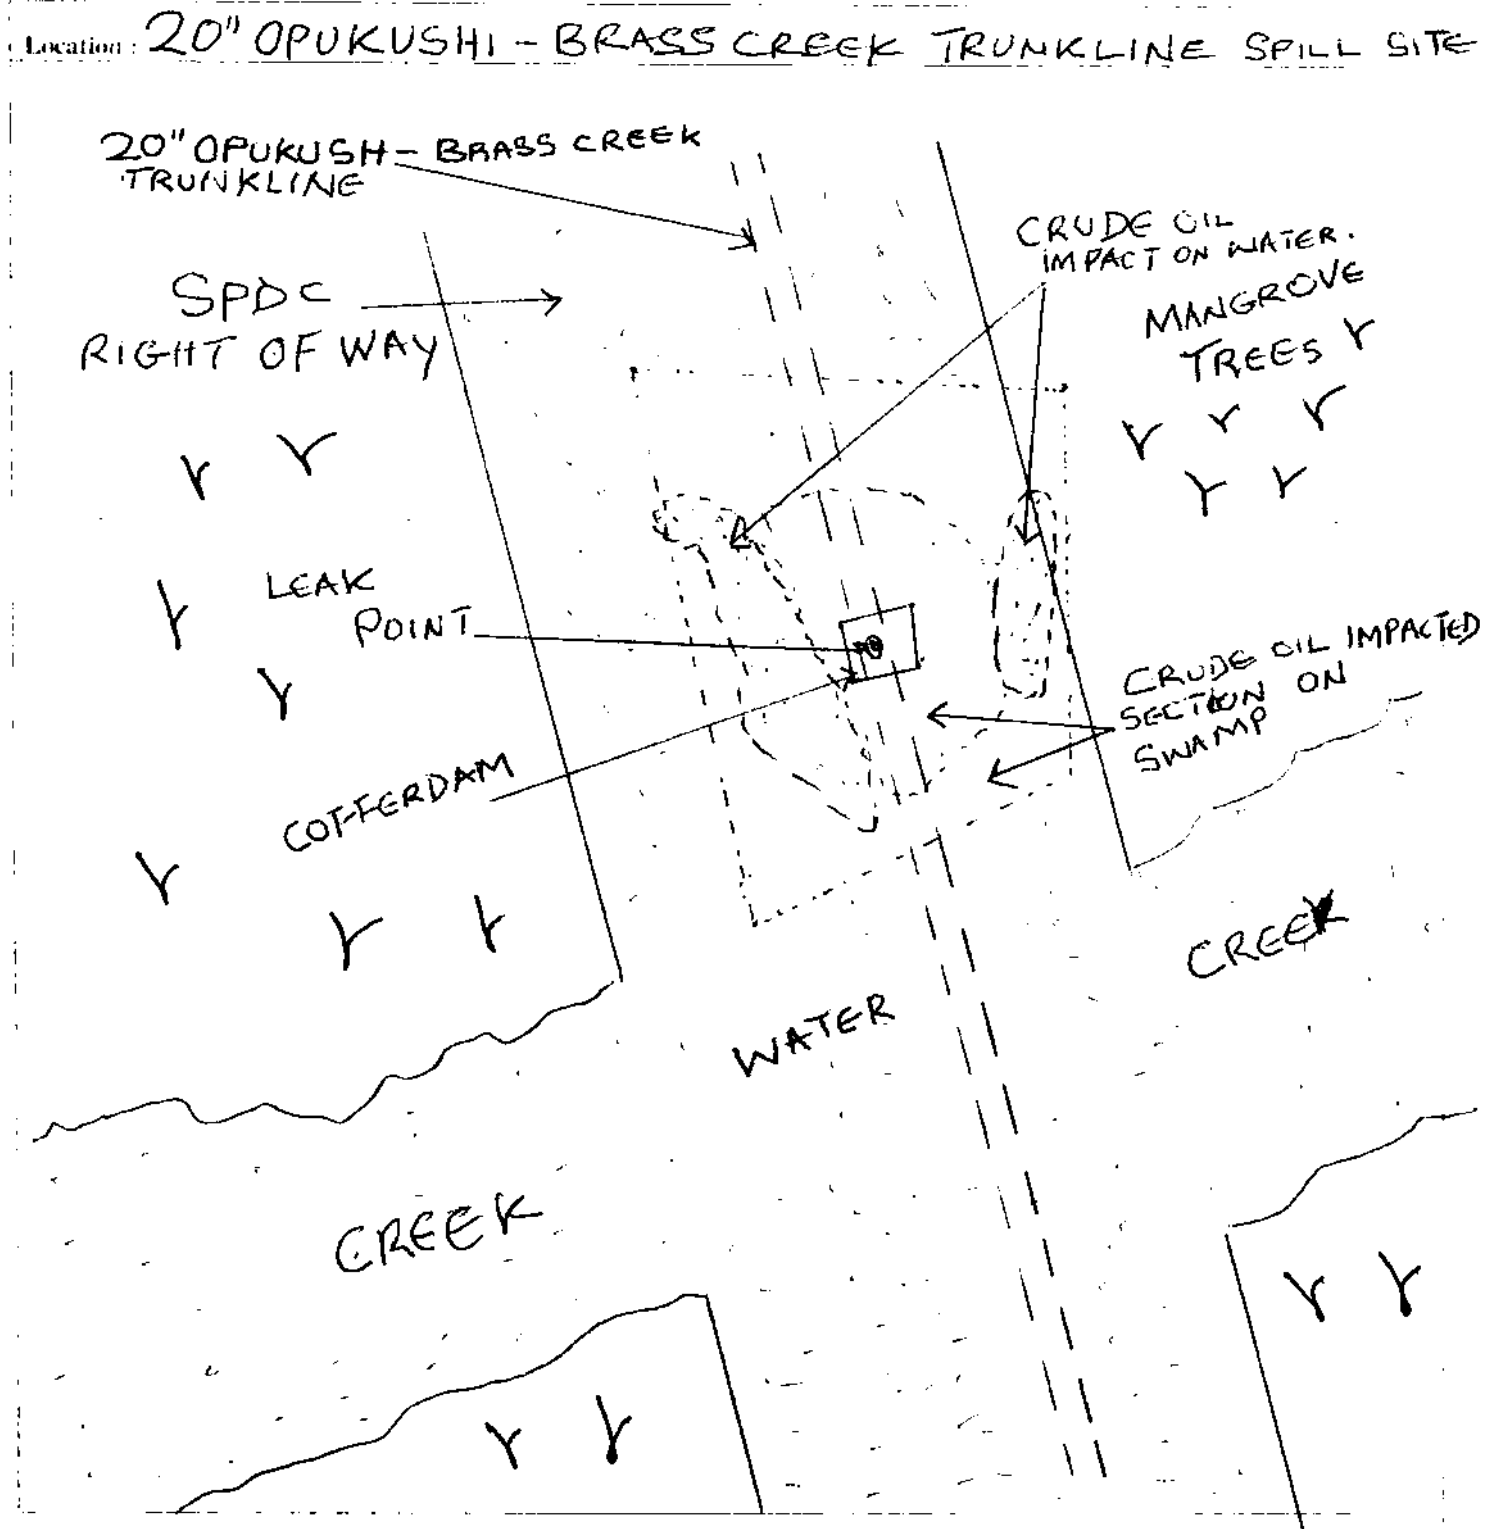 Location : 20" OPUKUSHI - BRASS CREEK TRUNKLINE SPILL SITE
20" OPUKUSH - BRASS CREEK
TRUNKLINE
CRUDE OIL
IMPACT ON WATER.
SPDC
RIGHT OF WAY
MANGROVE
TREES
LEAK
POINT
CRUDE OIL IMPACTED
SECTION ON
SWAMP
COFFERDAM
CREEK
WATER
CREEK